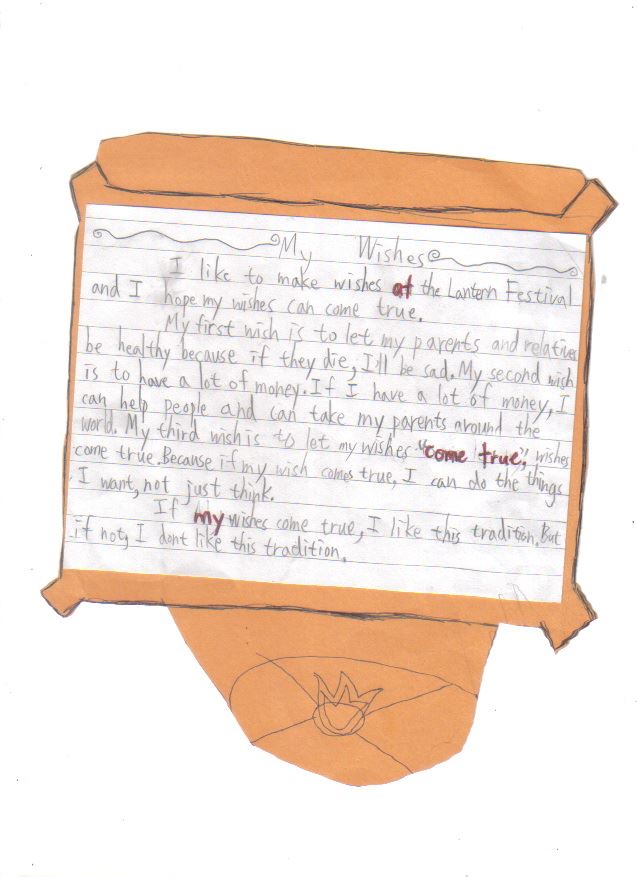 My Wishes
I like to make wishes at the Lantern Festival
and I hope my wishes can come true.
My first wish is to let my parents and relatives
be healthy because if they die, I'll be sad. My second wish
is to have a lot of money. If I have a lot of money, I
can help people and can take my parents around the
world. My third wish is to let my wishes "come true," wishes
come true. Because if my wish comes true, I can do the things
I want, not just think.
If my wishes come true, I like this tradition. But
if not, I dont like this tradition.